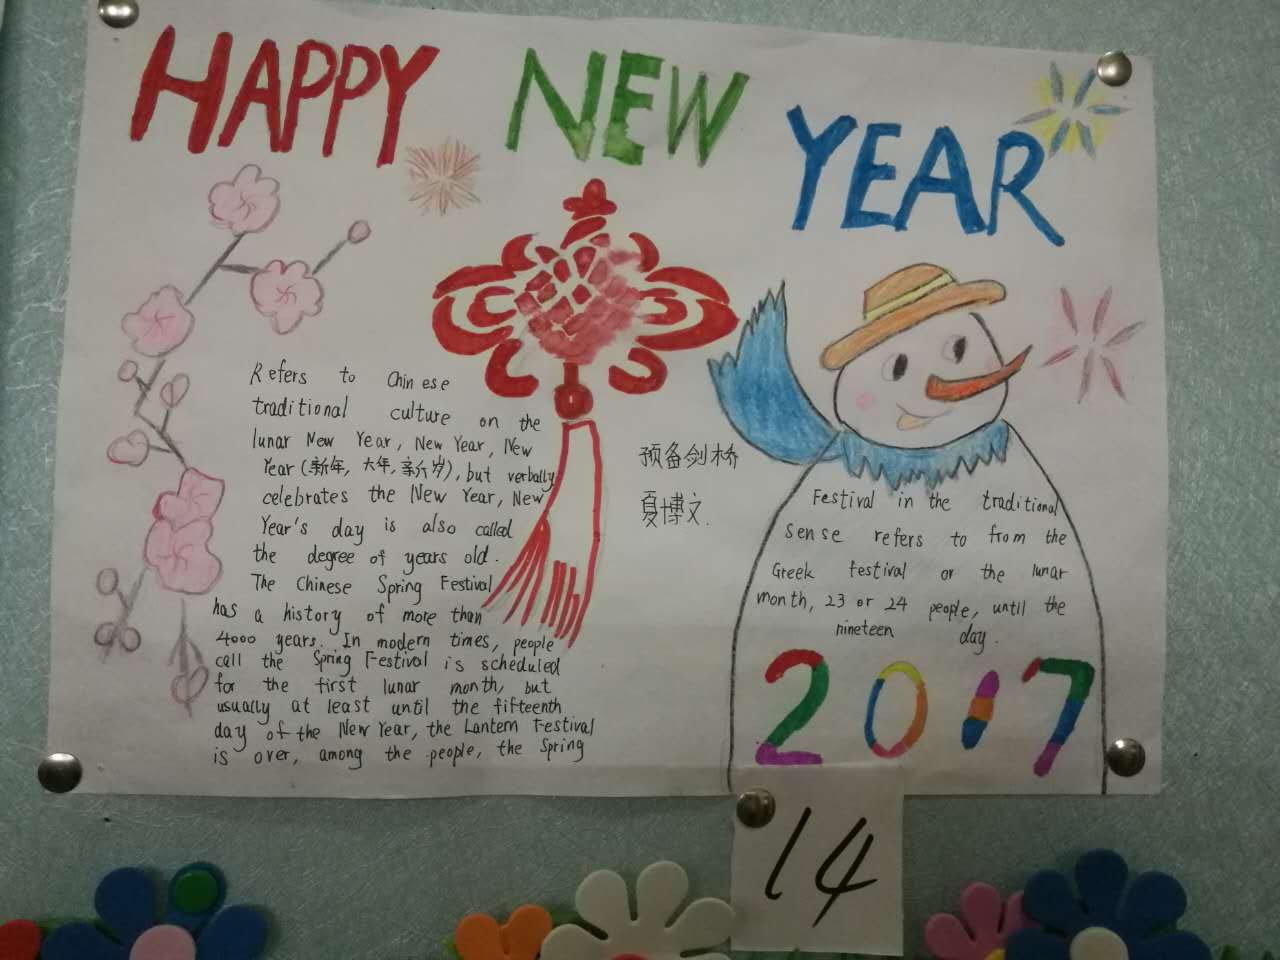 HAPPY NEW YEAR
Refers to Chinese
traditional culture on the
lunar New Year, New Year, New
Year (新年, 大年, 新岁), but verbally
celebrates the New Year, New
Year's day is also called
the degree of years old.
The Chinese Spring Festival
has a history of more than
4000 years. In modern times, people
call the Spring Festival is scheduled
for the first lunar month, but
usually at least until the fifteenth
day of the New Year, the Lantern Festival
is over, among the people, the Spring
预备剑桥
夏博文.
Festival in the traditional
sense refers to from the
Greek festival or the lunar
month, 23 or 24 people, until the
nineteen day.
2017
14